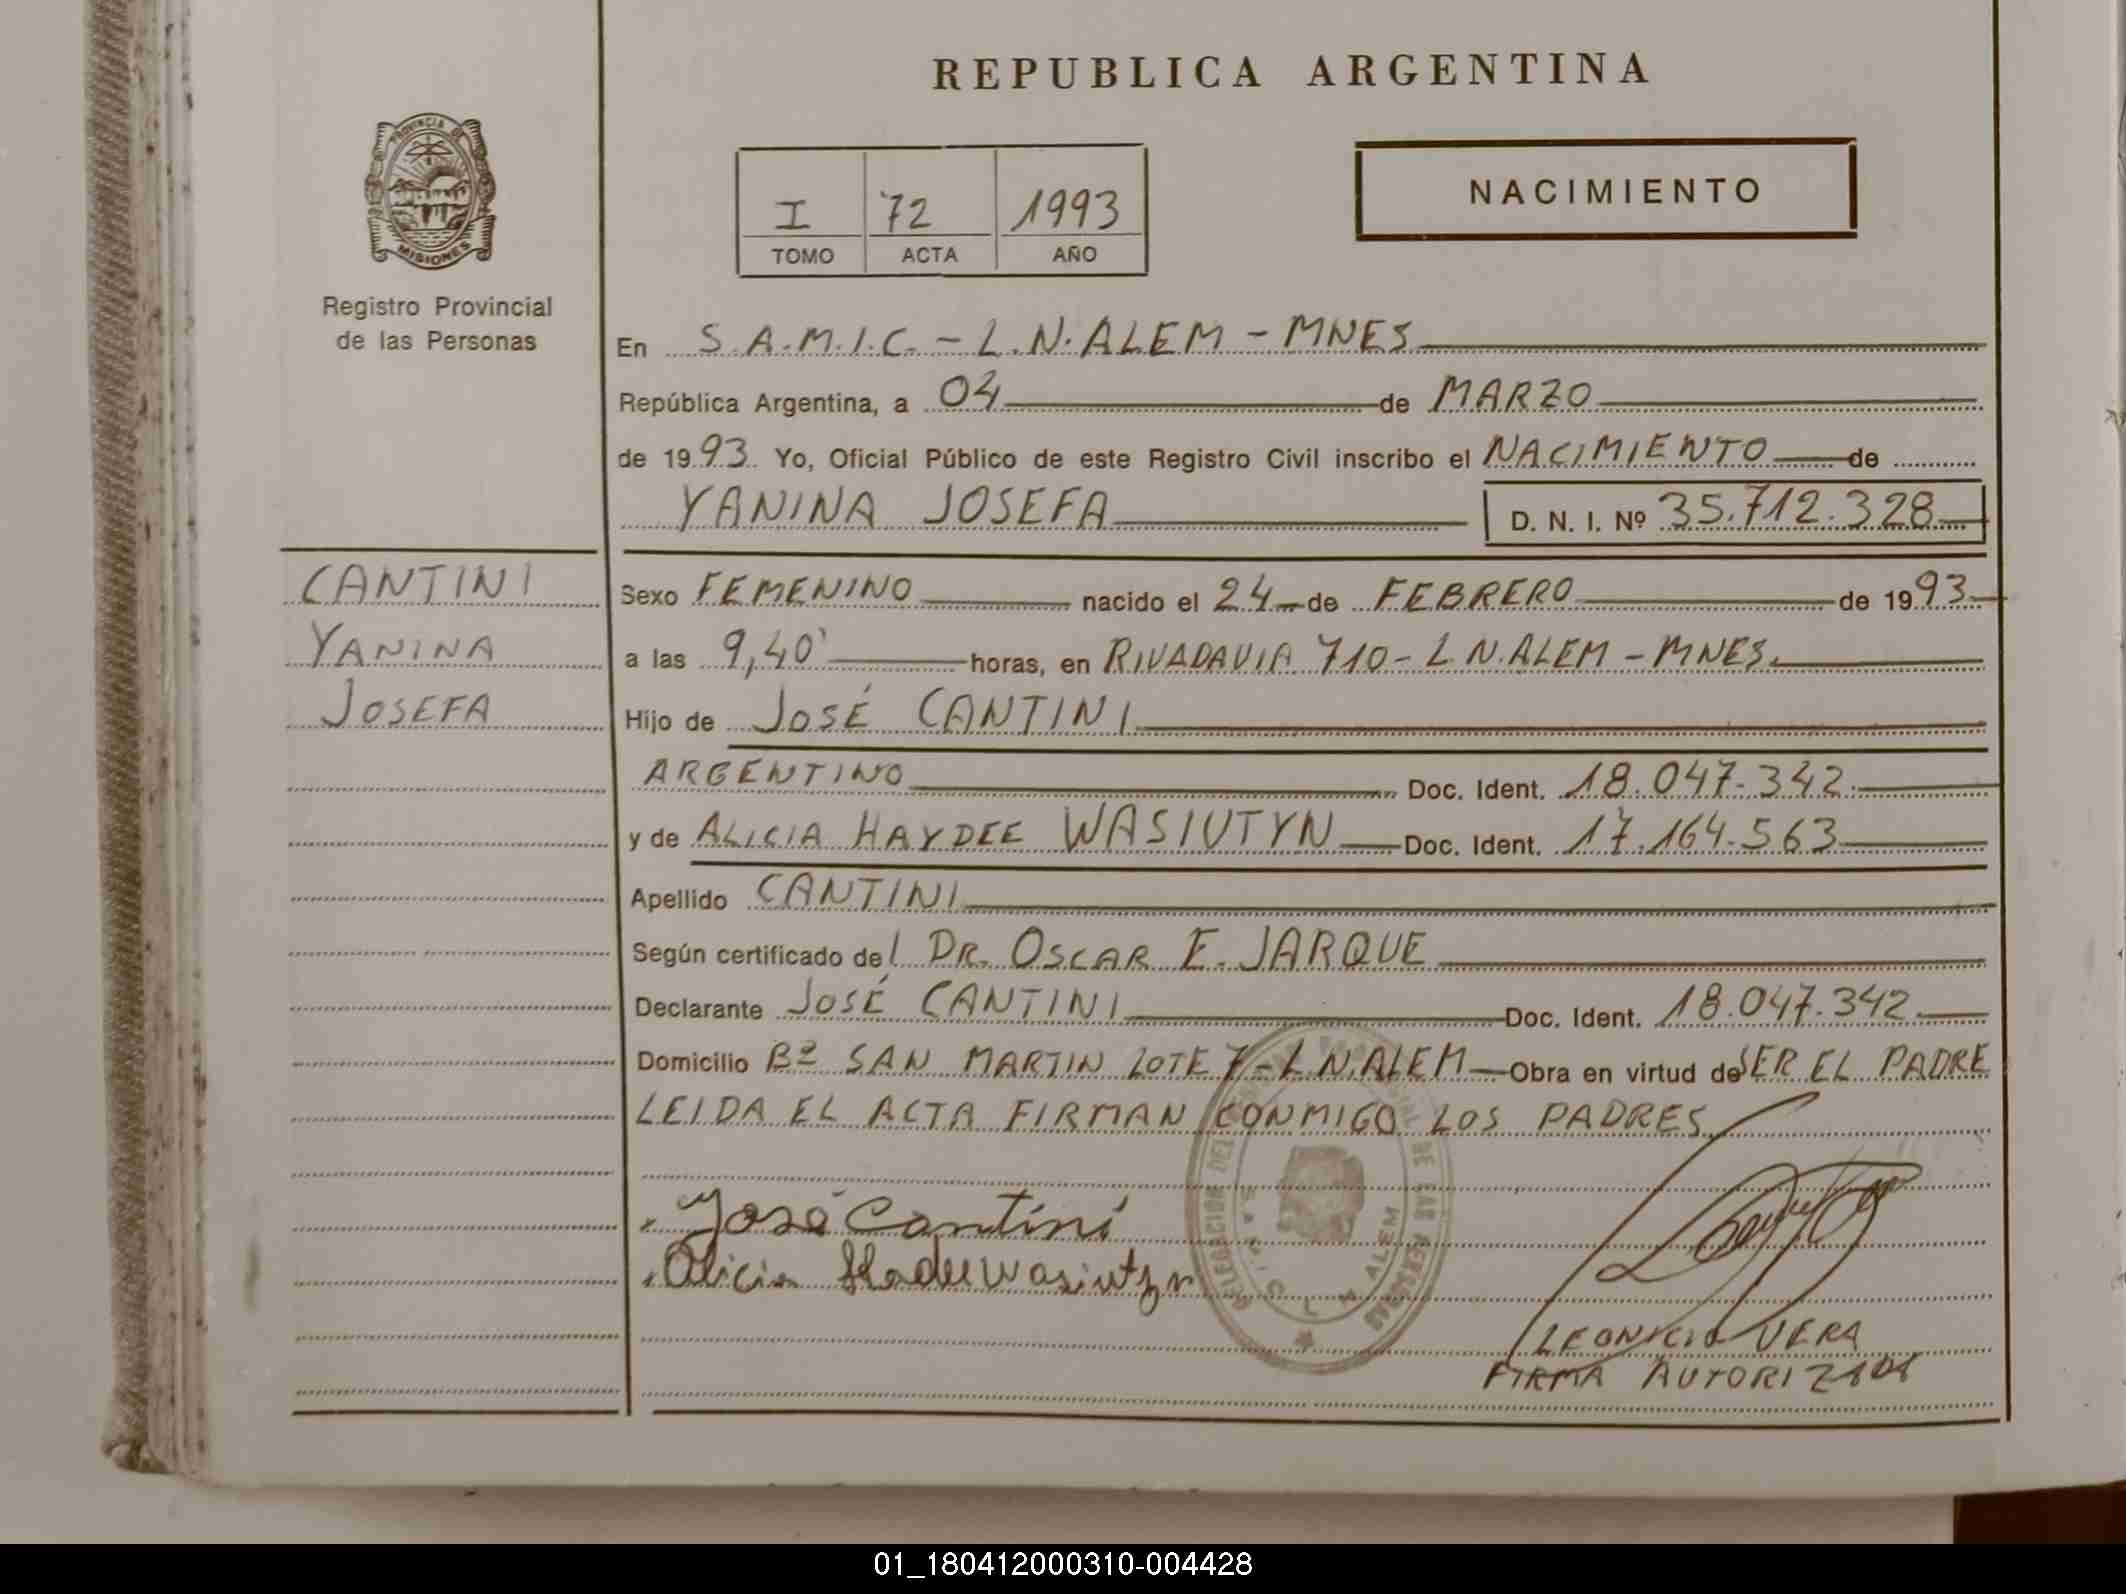 REPUBLICA ARGENTINA
PROVINCIA DE
MISIONES
Registro Provincial
de las Personas
I 72 1993
TOMO ACTA AÑO
NACIMIENTO
En S.A.M.I.C. - L.N. ALEM - MNES
República Argentina, a 04 de MARZO
de 1993 Yo, Oficial Público de este Registro Civil inscribo el NACIMIENTO de
YANINA JOSEFA D. N. I. Nº 35.712.328
CANTINI
YANINA
JOSEFA
Sexo FEMENINO nacido el 24 de FEBRERO de 1993
a las 9,40' horas, en RIVADAVIA 710 - L.N. ALEM - MNES.
Hijo de JOSÉ CANTINI
ARGENTINO Doc. Ident. 18.047.342
y de ALICIA HAYDEE WASIUTYN Doc. Ident. 17.164.563
Apellido CANTINI
Según certificado del DR. OSCAR E. JARQUE
Declarante JOSÉ CANTINI Doc. Ident. 18.047.342
Domicilio Bº SAN MARTIN LOTE 7 - L.N. ALEM Obra en virtud de SER EL PADRE
LEIDA EL ACTA FIRMAN CONMIGO LOS PADRES
José Cantini
Alicia Haydee Wasiutyn
DELEGACION DEL DE LAS PERSONAS
S.A.M.I.C. L. N. ALEM
LEONICIO VERA
FIRMA AUTORIZADA
01_180412000310-004428